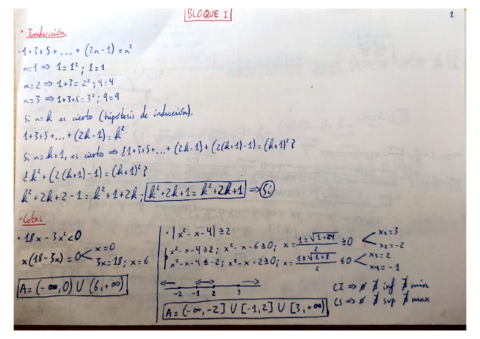 BLOQUE I
1
· Inducción
· 1+3+5+...+(2n-1)=n²
n=1 ⇒ 1=1²; 1=1
n=2 ⇒ 1+3=2²; 4=4
n=3 ⇒ 1+3+5=3²; 9=9
Si n=k es cierto (hipotesis de inducción).
1+3+5+...+(2k-1)=k²
Si n=k+1, es cierto ⇒ ¿1+3+5+...+(2k-1)+(2(k+1)-1)=(k+1)²?
¿k²+(2(k+1)-1)=(k+1)²?
k²+2k+2-1=k²+1+2k; k²+2k+1=k²+2k+1 ⇒ Sí
· Cotas
· 18x-3x²<0
x(18-3x)=0 x=0
3x=18; x=6
A=(-∞,0)∪(6,+∞)
· |x²-x-4|≥2
x²-x-4≥2; x²-x-6≥0; x=(1±√1+24)/2 ≥0 x₁=3
x₂=-2
x²-x-4≤-2; x²-x-2≤0; x=(1±√1+8)/2 ≤0 x₃=2
x₄=-1
-2 -1 2 3
A=(-∞,-2]∪[-1,2]∪[3,+∞)
CI ⇒ ∅ ∄ inf ∄ min
CS ⇒ ∅ ∄ sup ∄ max